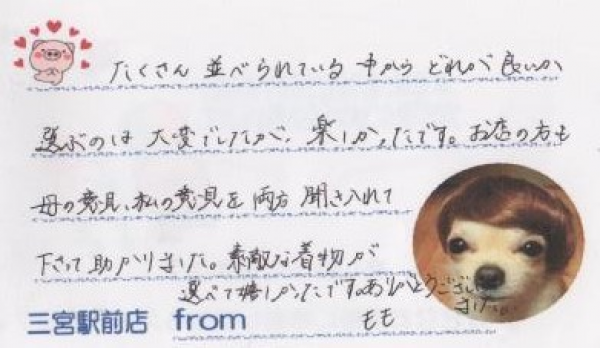 たくさん並べられている中からどれが良いか
選ぶのは大変でしたが、楽しかったです。お店の方も
母の意見、私の意見を両方聞き入れて
下さって助かりました。素敵な着物が
選べて嬉しかったです。ありがとうございました。
三宮駅前店 from もも